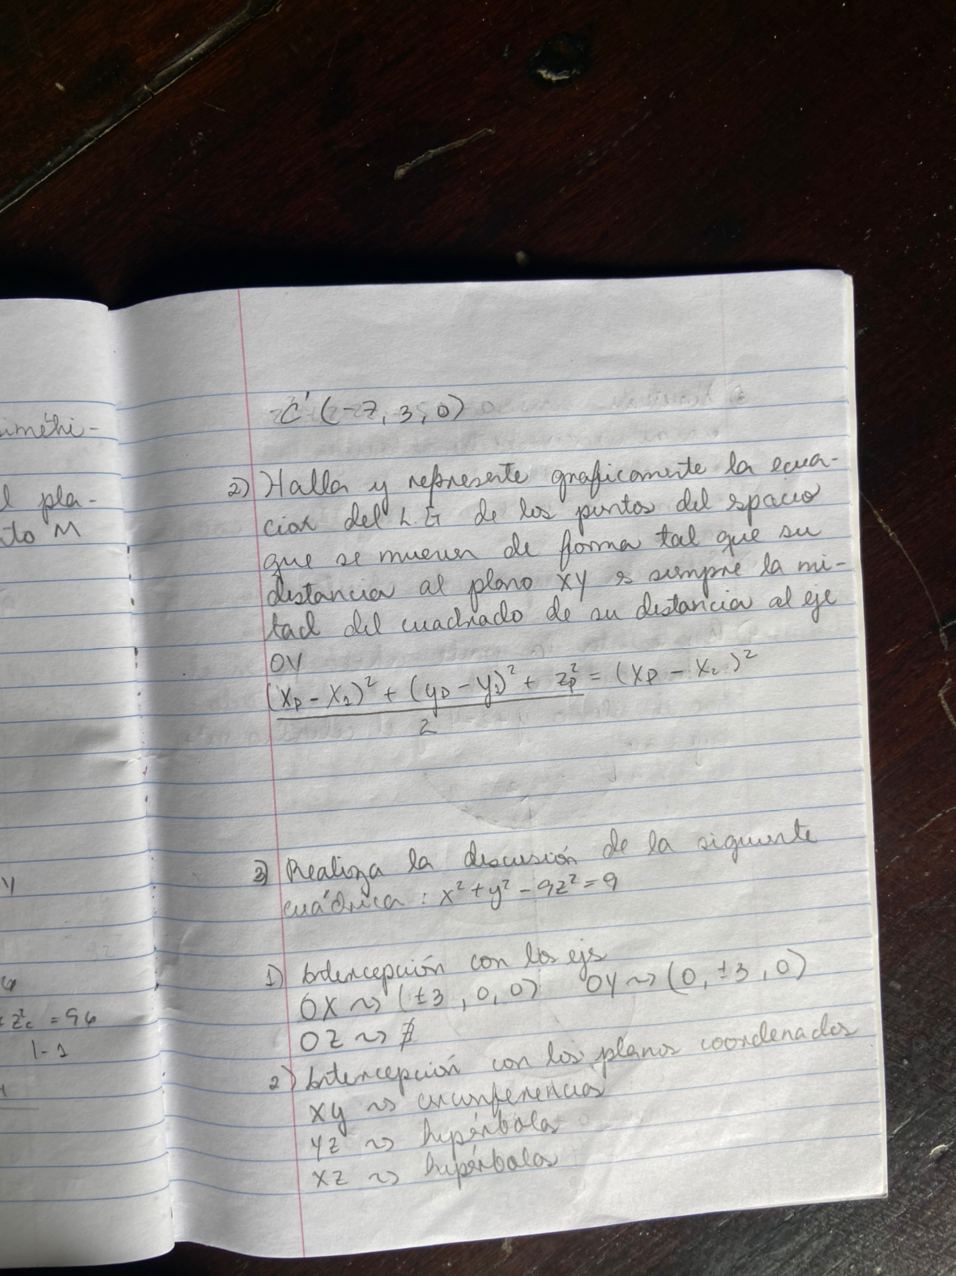 iméhi-
l pla-
to M
y
= 96
1-1
C' (-7, 3, 0)
2) Halla y represente graficamente la ecua-
cion del L.G de los puntos del spacio
que se mueven de forma tal que su
distancia al plano xy es siempre la mi-
tad del cuadrado de su distancia al eje
OY
(xp - x1)² + (yp - y1)² + zp² = (xp - x2)²
2
3) Realiza la discusión de la siguiente
cuádrica : x² + y² - 9z² = 9
1) Intercepción con los ejs
OX ~> (±3, 0, 0) OY ~> (0, ±3, 0)
OZ ~> ∄
2) Intercepción con los planos coordenados
xy ~> circunferencias
yz ~> hipérbolas
xz ~> hipérbolas